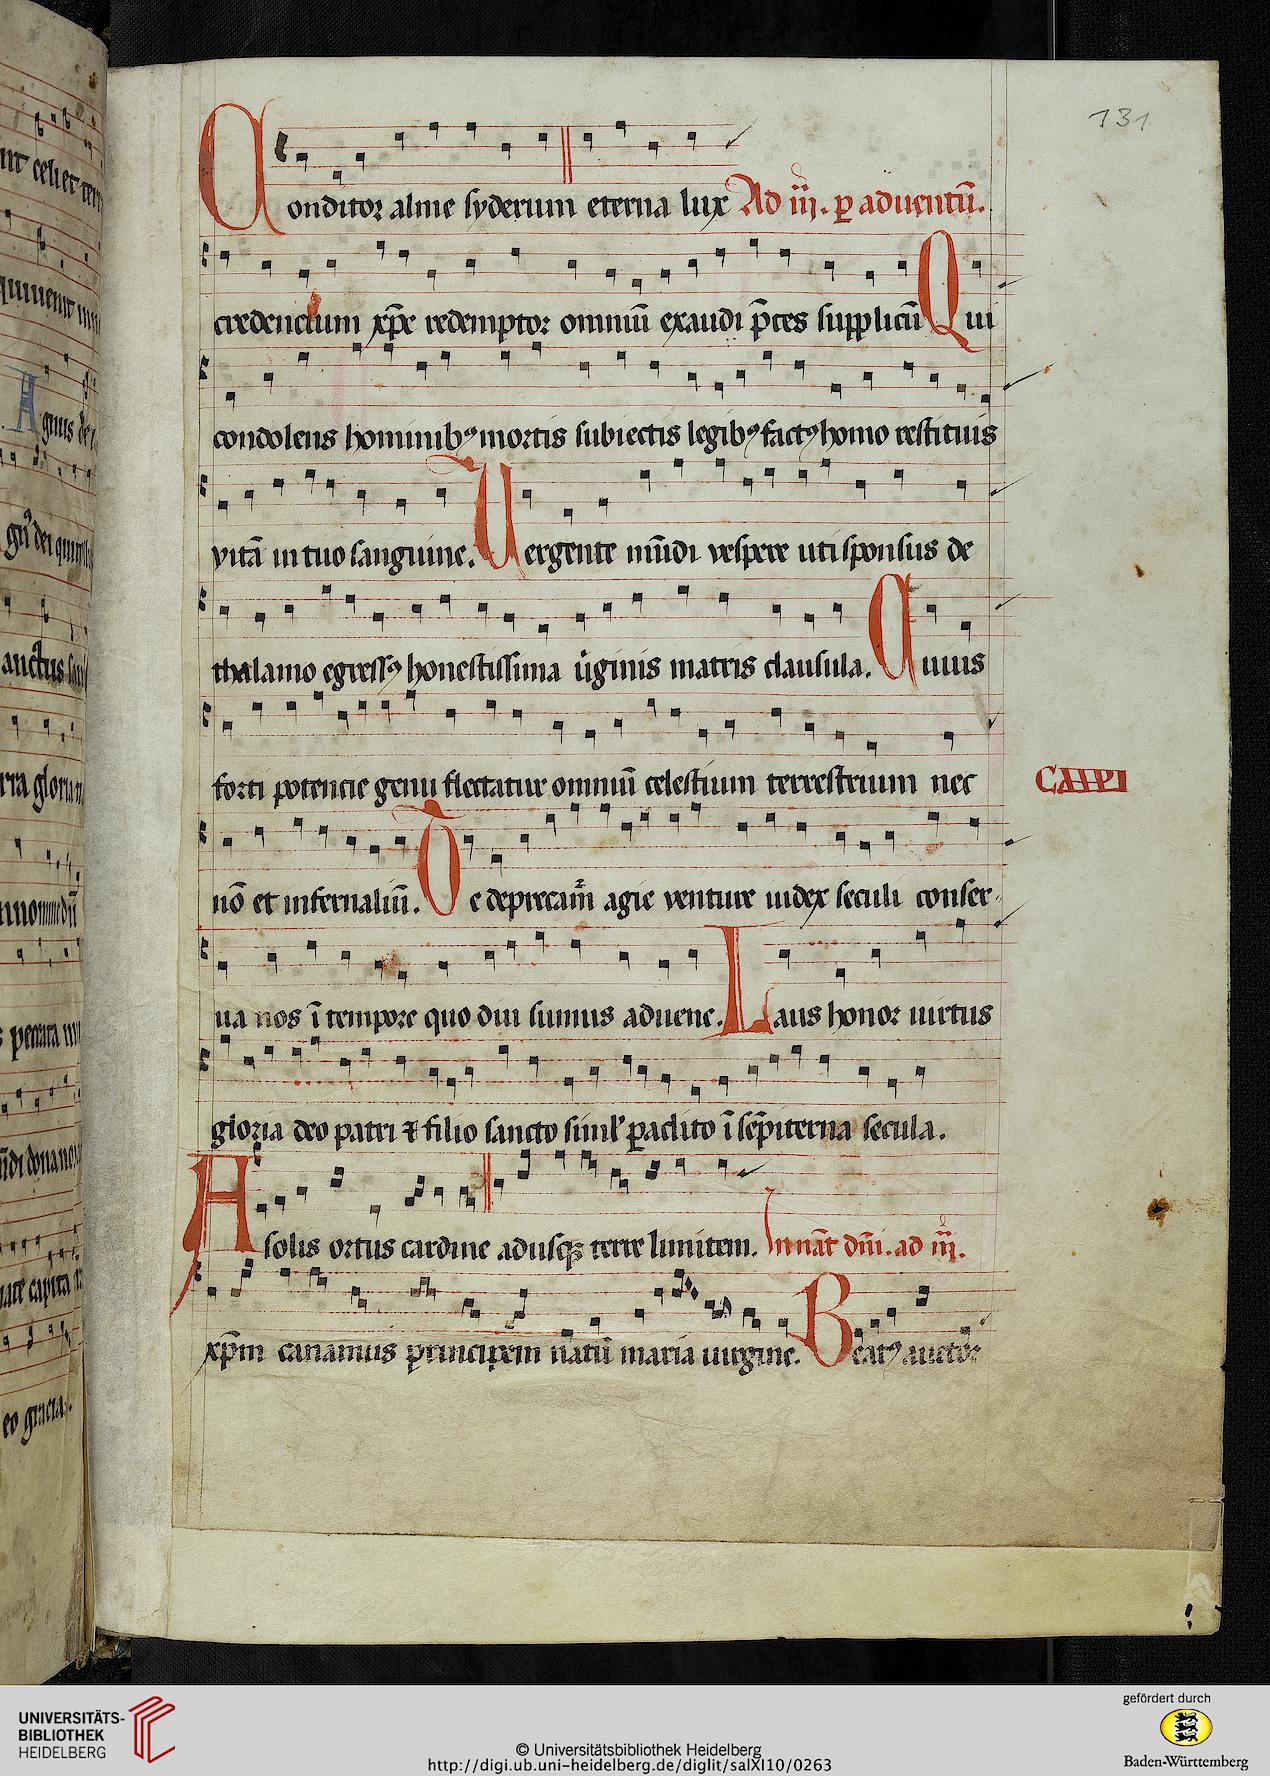 131
Conditor alme syderum eterna lux Ad iij. p aduentū.
credencium xp̄e redemptor omniū exaudi p̄ces supplicū Qui
condolens hominibꝰ mortis subiectis legibꝰ factꝰ homo restituis
vitā in tuo sanguine. Uergente mūdi vespere uti sponsus de
thalamo egressꝰ honestissima uͥginis matris clausula. Cuius
forti potencie genu flectatur omniū celestium terrestrium nec
nō et infernaliū. Te deprecam̄ agie venture iudex seculi conser-
ua nos ī tempore quo diu sumus aduene. Laus honor uirtus
gloria deo patri ⁊ filio sancto simlʼ paclito ī sēpiterna secula.
A solis ortus cardine adusqꝫ terre limitem. In nat̄ dn̄i. ad iij.
xp̄m canamus principem natū maria uirgine. Beatꝰ auctor
UNIVERSITÄTS-
BIBLIOTHEK
HEIDELBERG
© Universitätsbibliothek Heidelberg
http://digi.ub.uni-heidelberg.de/diglit/salXI10/0263
gefördert durch
Baden-Württemberg